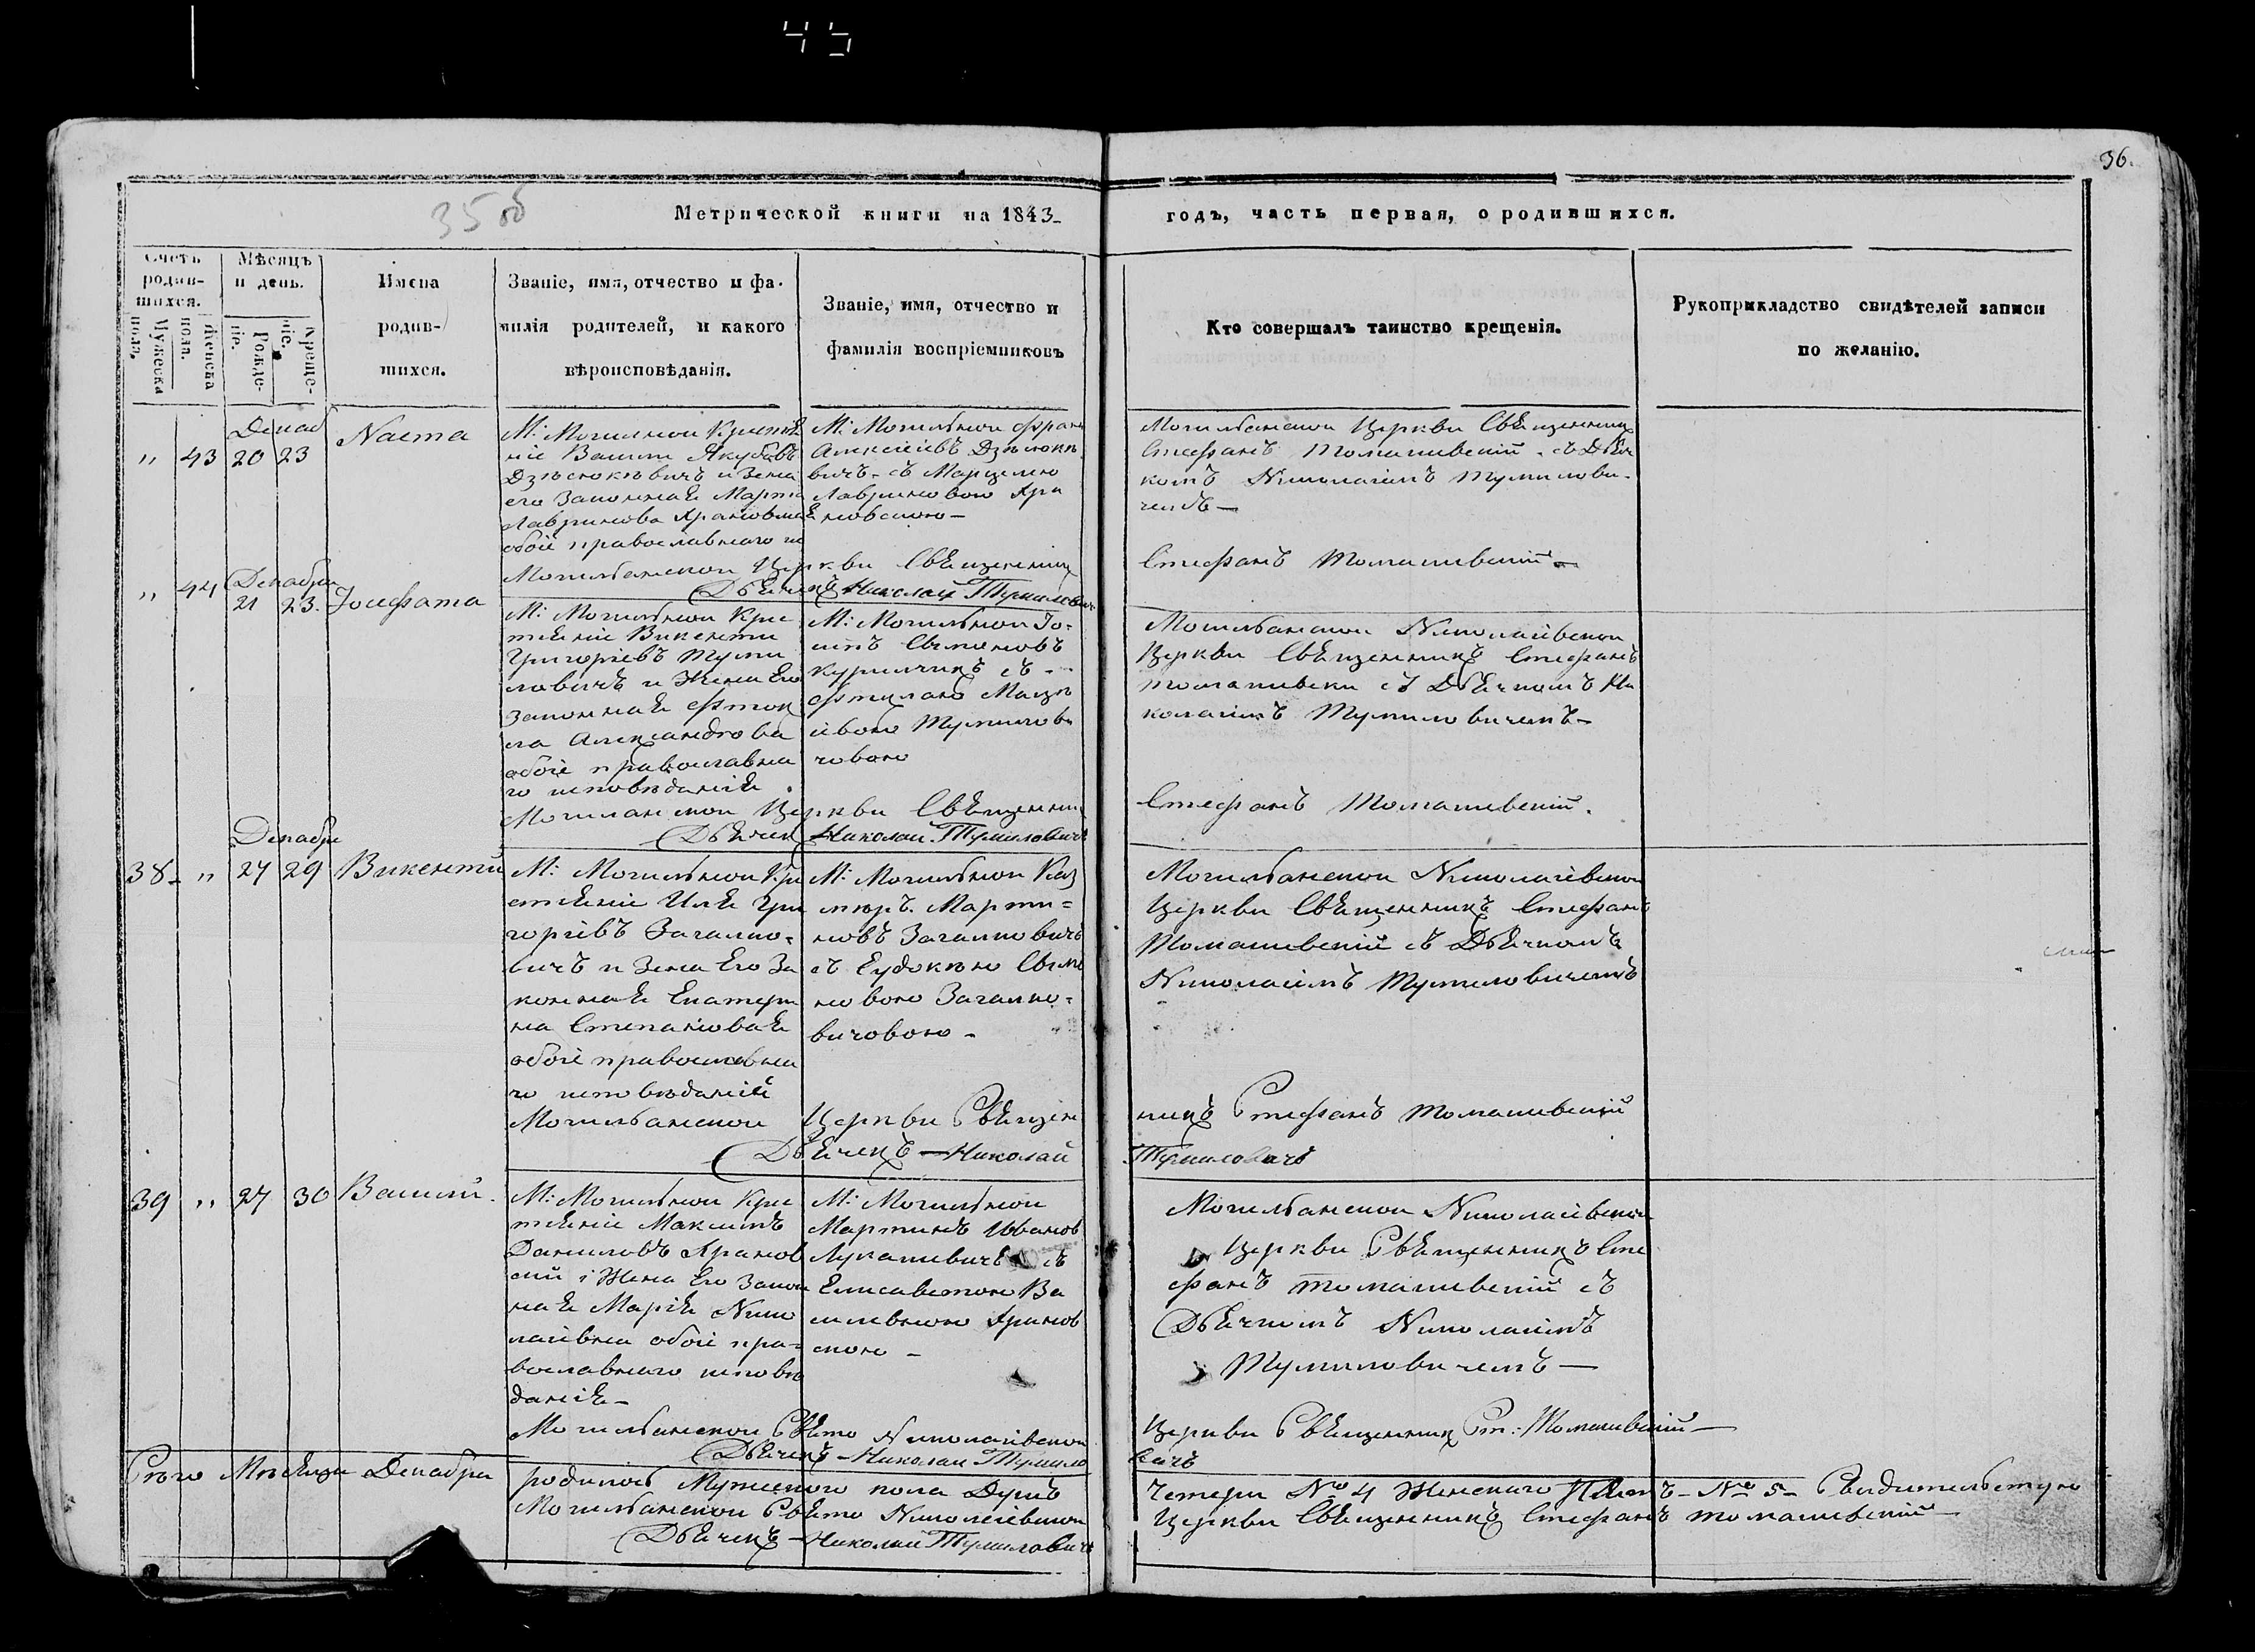 45
36.
35 об
Метрической книги на 1843-
годъ, часть первая, о родившихся.
Счетъ родив-шихся.
Мужеска пола.
Женска пола.
Мѣсяцъ и день.
Рожде-ніе.
Креще-ніе.
Имена
родив-
шихся.
Званіе, имя, отчество и фа-
милія родителей, и какого
вѣроисповѣданія.
Званіе, имя, отчество и
фамилія воспріемниковъ
Кто совершалъ таинство крещенія.
Рукоприкладство свидѣтелей записи
по желанію.
Декаб
„ 43 20 23 Наста
М: Могилной
ніе Васили Якубовъ
и Жена
его Законная Марта
обоіе православнаго
М: Могильной
Алексіевъ
вичъ съ
Могильанской Церкви Свящинникъ
Стефанъ Томашевскій съ Дьяч
комъ Николаімъ Тумилови-
чемъ —
Могильанской Церкви Свящинникъ
Стефанъ Томашевскій —
Дьячекъ Николай Тумиловичъ
Декабря
„ 44 21 23. Іосефата
М: Могильной Крес
тяніе Викенти
Григоріевъ Туми
ловичъ и Жена Его
Законная
ла Александрова
обоіе православна
го исповѣданія
М: Могильной Іо-
Сымоновъ
съ
Тумилови
човою
Могильанской Николаівской
Церкви Свящинникъ Стефанъ
Томашевски съ Дьячкомъ Ни
колаімъ Тумиловичемъ -
Могиланской Церкви Свящинник
Стефанъ Томашевскій.
Дьячек Николай Тумиловичъ
Декабря
38 - „ 27 29 Викентій
М: Могильной Кри
стяніе Илья Гри
горіевъ Загалко-
вичъ и Жена Его За
конная Екатери
на Степановая
обоіе православна
го исповѣданій
М: Могильной Каз
миръ. Марти-
новъ Загалковичъ
съ Еудокѣю Сымо
новою Загалко-
вичовою -
Могильанской Николаівской
Церкви Свящинникъ Стефанъ
Томашевскій съ Дьячкомъ
Николаімъ Тумиловичемъ
Могильанской Церкви Свящин
никъ Стефанъ Томашевскій
Дьячекъ — Николай
Тумиловичъ
39 „ 27 30 Василій.
М: Могильной Крес
тяніе Максимъ
Даниловъ Яранов
скій і Жена Его Закон
ная Марія Нико
лаівна обоіе пра-
вославнаго исповѣ
данія -
М: Могильной
Мартинъ Иванов
Лукашевичъ съ
Елисаветою Ва
силевною Яранов
скою -
Могильанской Николаівской
Церкви Свящинникъ Сте
фанъ Томашевскій съ
Дьячкомъ Николаімъ
Тумиловичемъ —
Могильанской Свято Николаівской
Церкви Свящинникъ Ст: Томашевскій —
Дьячекъ - Николай Тумило
вичъ
Сего Мѣсяца Декабря
родилось Мужеского пола Душъ
Четери № 4 Женского Пять - № 5 - Свидительствую
Могильанской Свято Николаівской
Церкви Свящинникъ Стефанъ Томашевскій —
Дьячекъ - Николай Тумиловичъ